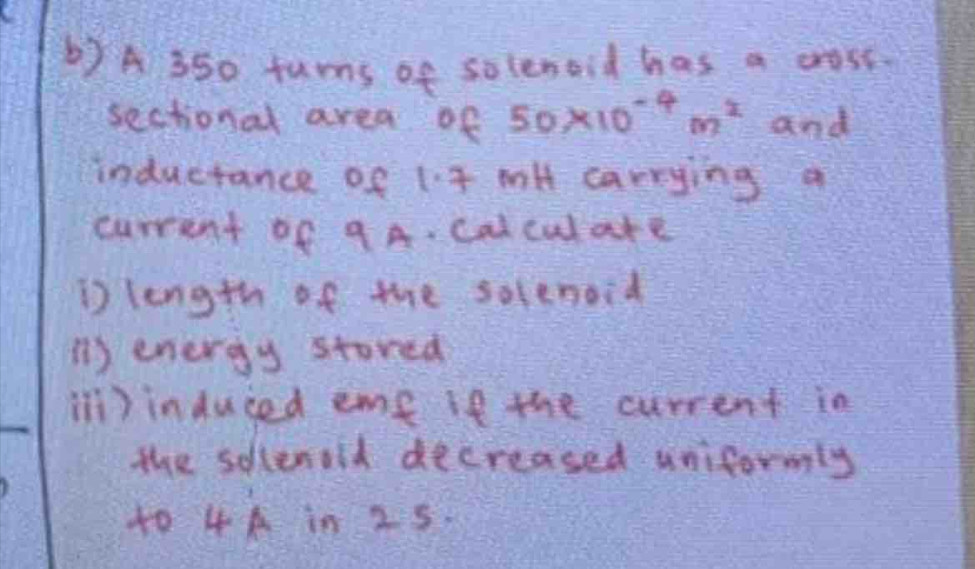 b) A 350 turns of solenoid has a cross-
sectional area of 50×10⁻⁴ m² and
inductance of 1.7 mH carrying a
current of 9 A. Calculate
i) length of the solenoid
ii) energy stored
iii) induced emf if the current in
the solenoid decreased uniformly
to 4 A in 2 s.